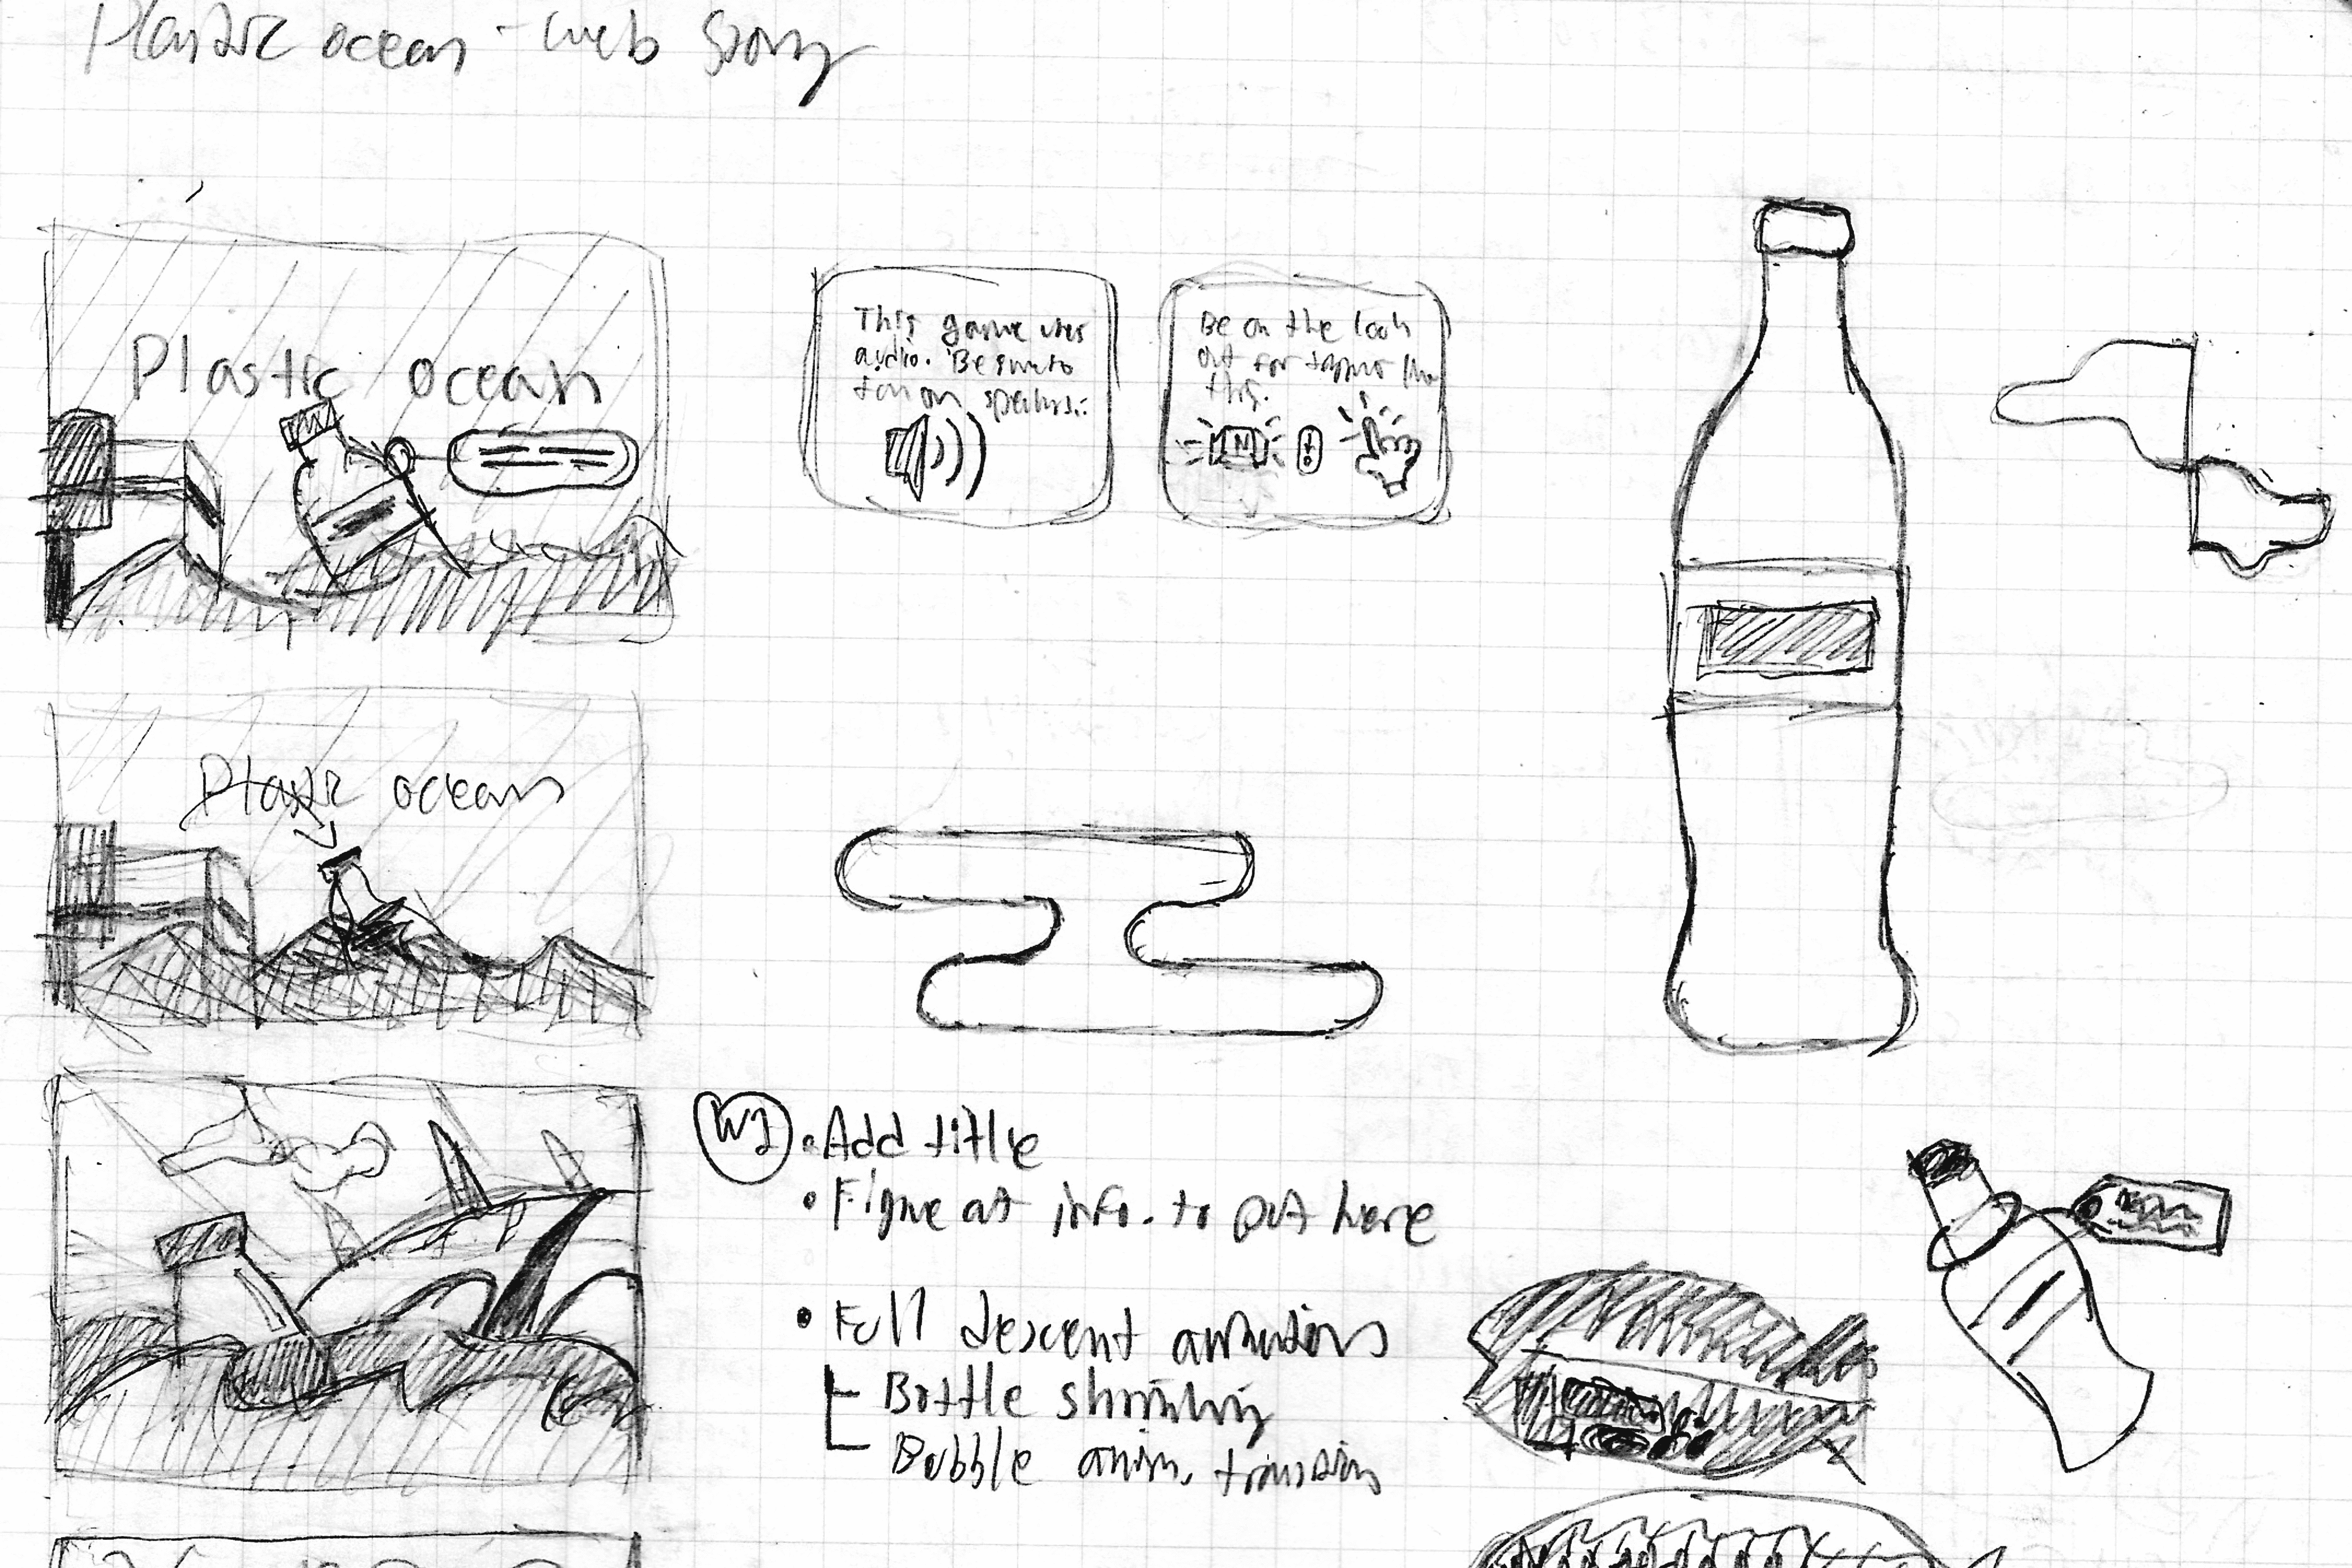 Plastic ocean - web story
Plastic ocean
This game uses
audio. Be sure to
turn on speakers.
Be on the look
out for
this.
Plastic ocean
W1
• Add title
• Figure out info. to put here
• Full descent animations
Bottle shrinking
Bubble anim. transition